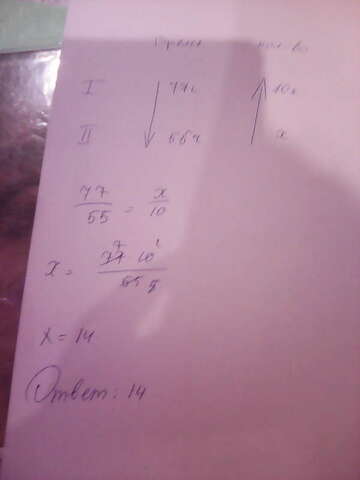 Время кол-во
I 77ч 10ч
II 55ч x
77/55 = x/10
x = 77 7 · 10 2 / 55 5
x = 14
Ответ: 14